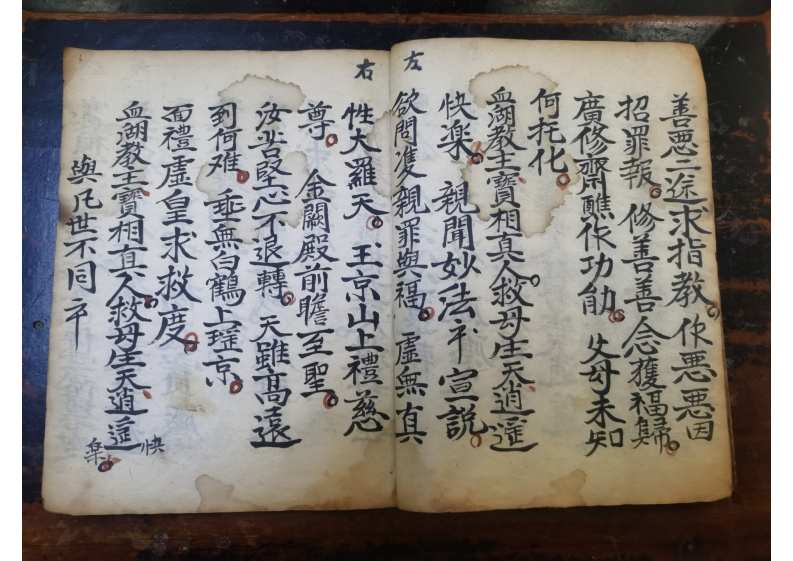 左
善悪二途求指教。作悪悪因
招罪報。修善善念獲福歸。
廣修齋醮作功能。父母未知
何托化。
血湖教主寶相真人救母生天逍遥
快楽。親聞妙法卒宣説。
欲問双親罪與福。虛無真
右
性大羅天。王京山上禮慈
尊。金闕殿前瞻至聖。
汝若堅心不退轉。天雖高遠
到何难。垂無白鶴上瑶京。
面禮虛皇求救度。
血湖教主寶相真人救母生天逍遥
快楽。
與凡世不同卒